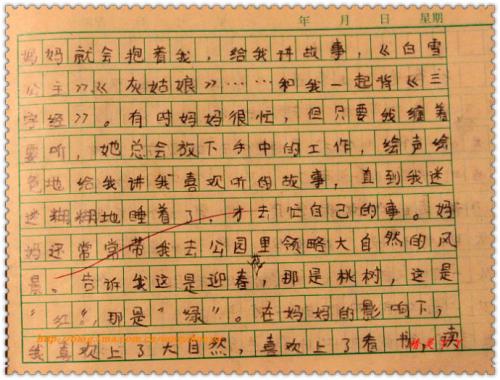 年 月 日 星期
妈妈就会抱着我，给我讲故事，《白雪
公主》《灰姑娘》……和我一起背《三
字经》。有时妈妈很忙，但只要我缠着
要听，她总会放下手中的工作，绘声绘
色地给我讲我喜欢听的故事，直到我迷
迷糊糊地睡着了，才去忙自己的事。妈
妈还常常带我去公园里领略大自然的风
景。告诉我这是迎春花，那是桃树，这是
“红”，那是“绿”。在妈妈的影响下，
我喜欢上了大自然，喜欢上了看书，读